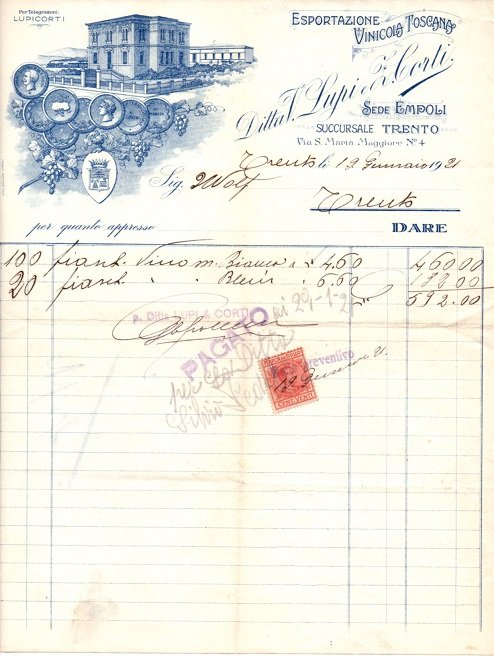 Per Telegrammi:
LUPICORTI
ESPORTAZIONE
VINICOLA TOSCANA
Ditta V. Lupi & Z. Corti
SEDE EMPOLI
SUCCURSALE TRENTO
Via S. Maria Maggiore N° 4
Trento li 19 Gennaio 1921
Sig. Wolf
Trento
per quanto appresso DARE
100 fiaschi Vino m. Bianco a £ 4.60 460.00
20 fiaschi " " 6.60 132.00
592.00
P. Ditta LUPI & CORTI
PAGATO ai 29-1-21
per la Ditta
Silvio
Preventivo
CENT. VENTI